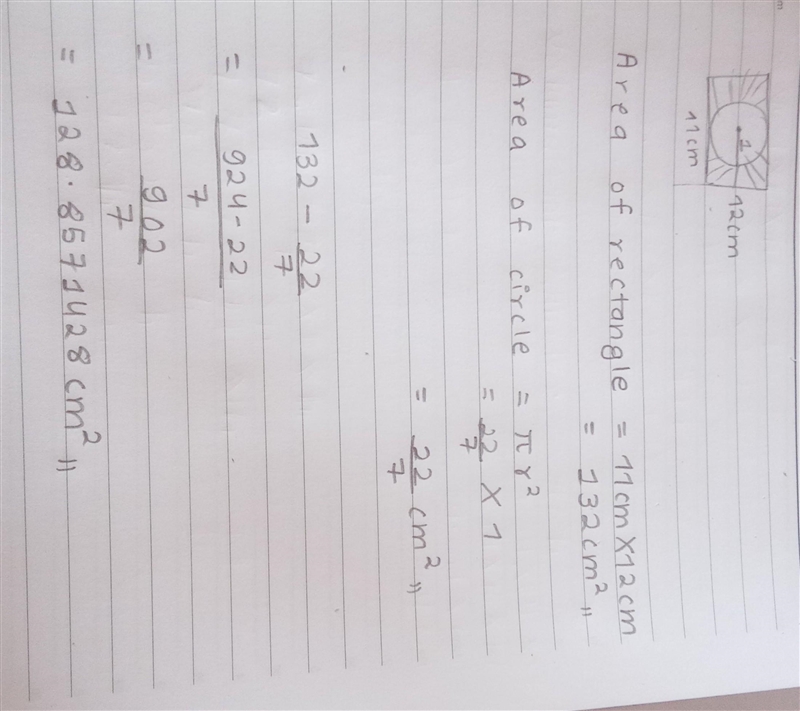 1
12cm
11cm
Area of rectangle = 11cm X 12cm
= 132cm² "
Area of circle = πr²
= 22/7 X 1
= 22/7 cm² "
132 - 22/7
= 924-22/7
= 902/7
= 128.8571428cm² "